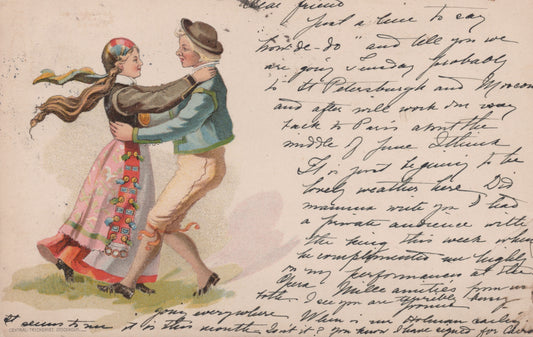 Dear friend
Just a line to say
how-de-do" and tell you we
are going Sunday probably
to St Petersburgh and Moscow
and after will work our way
back to Paris about the
middle of June I think
It's just beginning to be
lovely weather here Did
mamma write you I had
a private audience with
the King this week when
he complimented me highly
on my performances at the
Opera Mille amitiés from us
both. I see you are terribly busy
your everywhere When is mr Holman sailing
It seems to me it is this month. Isn't it? you know I have signed for
CENTRAL-TRYCKERIET, STOCKHOLM